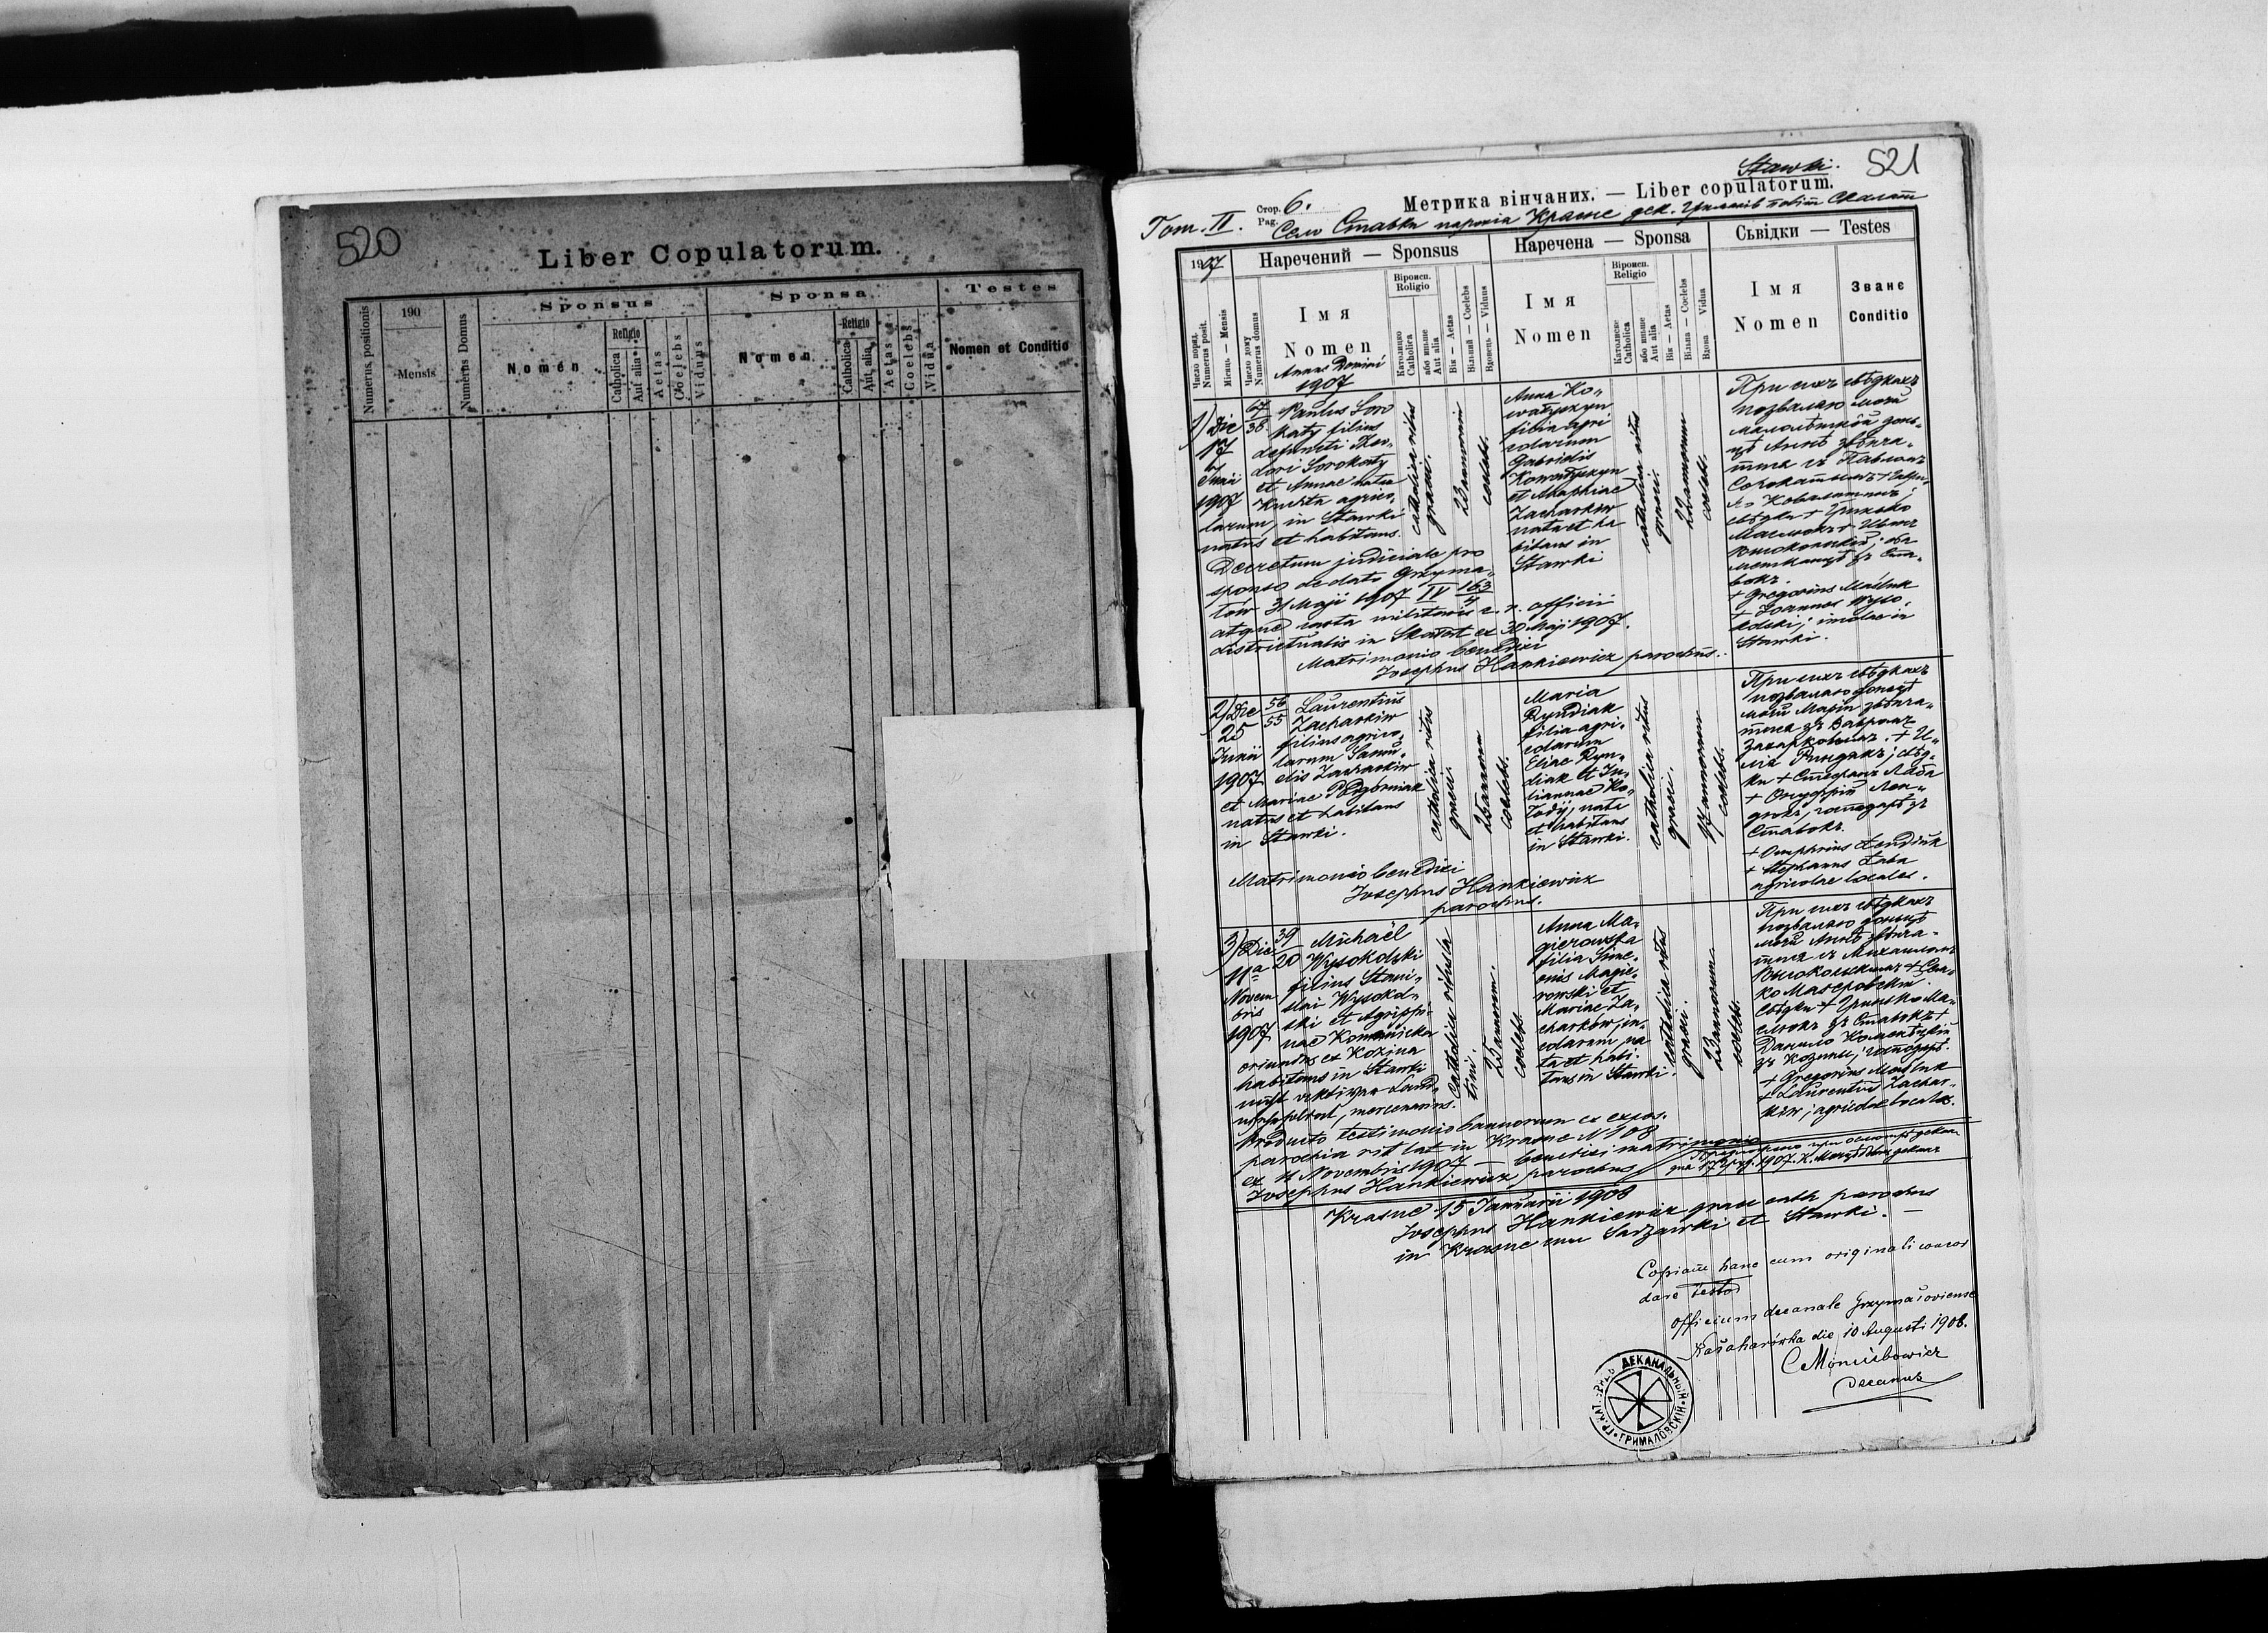 520
Liber Copulatorum.
Numerus positionis
190
Mensis
Numerus Domus
Sponsus
Nomen
Religio
Catholica
Aut alia
Aetas
Coelebs
Viduus
Sponsa
Nomen
Religio
Catholica
Aut alia
Aetas
Coelebs
Vidua
Testes
Nomen et Conditio
Stawki.
521
Tom. II.
Стор. 6.
Pag.
Метрика вінчаних. — Liber copulatorum.
Село Ставки парохія Красне дек. Грималів повіт Скалат
1907
Число поряд.
Numerus posit.
Місяць — Mensis
Число дому
Numerus domus
Наречений — Sponsus
Імя
Nomen
Віроисп.
Religio
Католицке
Catholica
або инъше
Aut alia
Вік — Aetas
Вільний — Coelebs
Вдовець — Viduus
Наречена — Sponsa
Імя
Nomen
Віроисп.
Religio
Католицке
Catholica
або инъше
Aut alia
Вік — Aetas
Вільна — Coelebs
Вдова Vidua
Сьвідки — Testes
Імя
Nomen
Званє
Conditio
Annus Domini
1907
1) Die
17
Junii
1907
67
38.
Paulus Soro
katy filius
defuncti Theo-
dori Sorokaty
et Annae natae
Kuchta agrico-
larum, in Stawki
natus et habitans.
catholica ritus
graeci.
23 annorum
coelebs.
Anna Ko-
filia agri
colarum
Gabrielis
et Agaphiae
Zacharków
nata et ha
bitans in
Stawki
catholica ritus
graeci.
22 annorum
coelebs.
При сихъ свѣдкахъ
позваляю моїй
малолѣтнôй донь-
цѣ Аннѣ звѣнча-
тися съ Павломъ
свѣдки + Гринько
бокъ.
+ Gregorius Maślak
+ Joannes Wyso
kolski; incolae in
Stawki.
Decretum judiciale pro
sponso de dato Grzyma-
łow 31 Maji 1907 IV 163/4
atque carta militaris c. r. officii
districtualis in Skałat ex 30 Maji 1907.
Matrimonio benedixi
Josephus Hankiewicz parochus.
2) Die
25
Junii
1907
56
55
Laurentius
Zacharków
filius agrico-
larum Samu-
elis Zacharków
et Mariae
natus et habitans
in Stawki.
catholica ritus
graeci.
25 annorum
coelebs.
Maria
Ryndiak
filia agri-
colarum
Eliae Ryn-
diak et Ju-
liannae Ko-
łodij, nata
et habitans
in Stawki.
catholica ritus
graeci.
17 annorum
coelebs.
При сихъ свѣдкахъ
позваляю доньцѣ
моїй Маріи звѣнча-
тися зъ Лавромъ
Захарковымъ. + И-
лія Рындякъ; свѣд-
ки + Стефанъ Лаба
+ Онуфрій Лен-
дюкъ, господарѣ зъ
Ставокъ.
+ Onuphrius Lendiuk
+ Stephanus Łaba
agricolae locales.
Matrimonio benedixi
Josephus Hankiewicz
parochus.
3) Die
11a
Novem
bris
1907
39
20
Michaël
Wysokolski
filius Stani-
slai Wysokol-
ski et Agrippi-
nae
oriundus ex Kozina
habitans in Stawki
catholica ritus la
tini.
25 annorum.
coelebs.
Anna Ma-
gierowska
filia Sime-
onis Magie-
rowski et
Mariae Za-
charków, in-
colarum, na
ta et habi-
tans in Stawki.
catholica ritus
graeci.
23 annorum
coelebs.
При сихъ свѣдкахъ
позваляю доньцѣ
моїй Аннѣ звѣнча-
тися съ Михаиломъ
Высокольскимъ + Сень-
ко Магеровскій.
Свѣдки + Гринько Ма-
слюкъ зъ Ставокъ +
зъ Козины, господарѣ.
+ Gregorius Maślak
+ Laurentius Zachar-
ków; agricolae locales.
Producto testimonio bannorum ex expos.
parochia rit. lat. in Krasne N 108
ex 11 Novembris 1907 — benedixi matrimonio
Josephus Hankiewicz, parochus
Krasne 15 Januarii 1908
Josephus Hankiewicz graeci cath. parochus
in Krasne cum Sadzawki et Stawki. —
Copiam hanc cum originali concor
dare testor
Officium decanale Grzymałoviense
Kačaharówka die 10 Augusti 1908.
Decanus
ДЕКАНАЛЬНЫЙ
ГРИМАЛОВСКІЙ
ГР. КАТ.